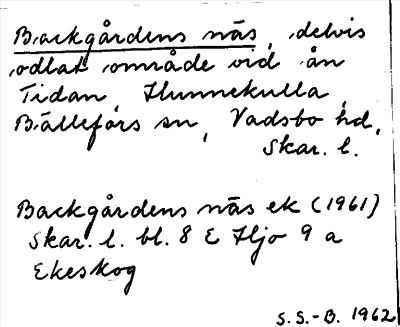 Backgårdens näs, delvis
odlat område vid ån
Tidan, Hunnekulla,
Bällefors sn, Vadsbo hd,
Skar. l.
Backgårdens näs ek (1961)
Skar. l. bl. 8 E Hjo 9 a
Ekeskog
S.S.-B. 1962